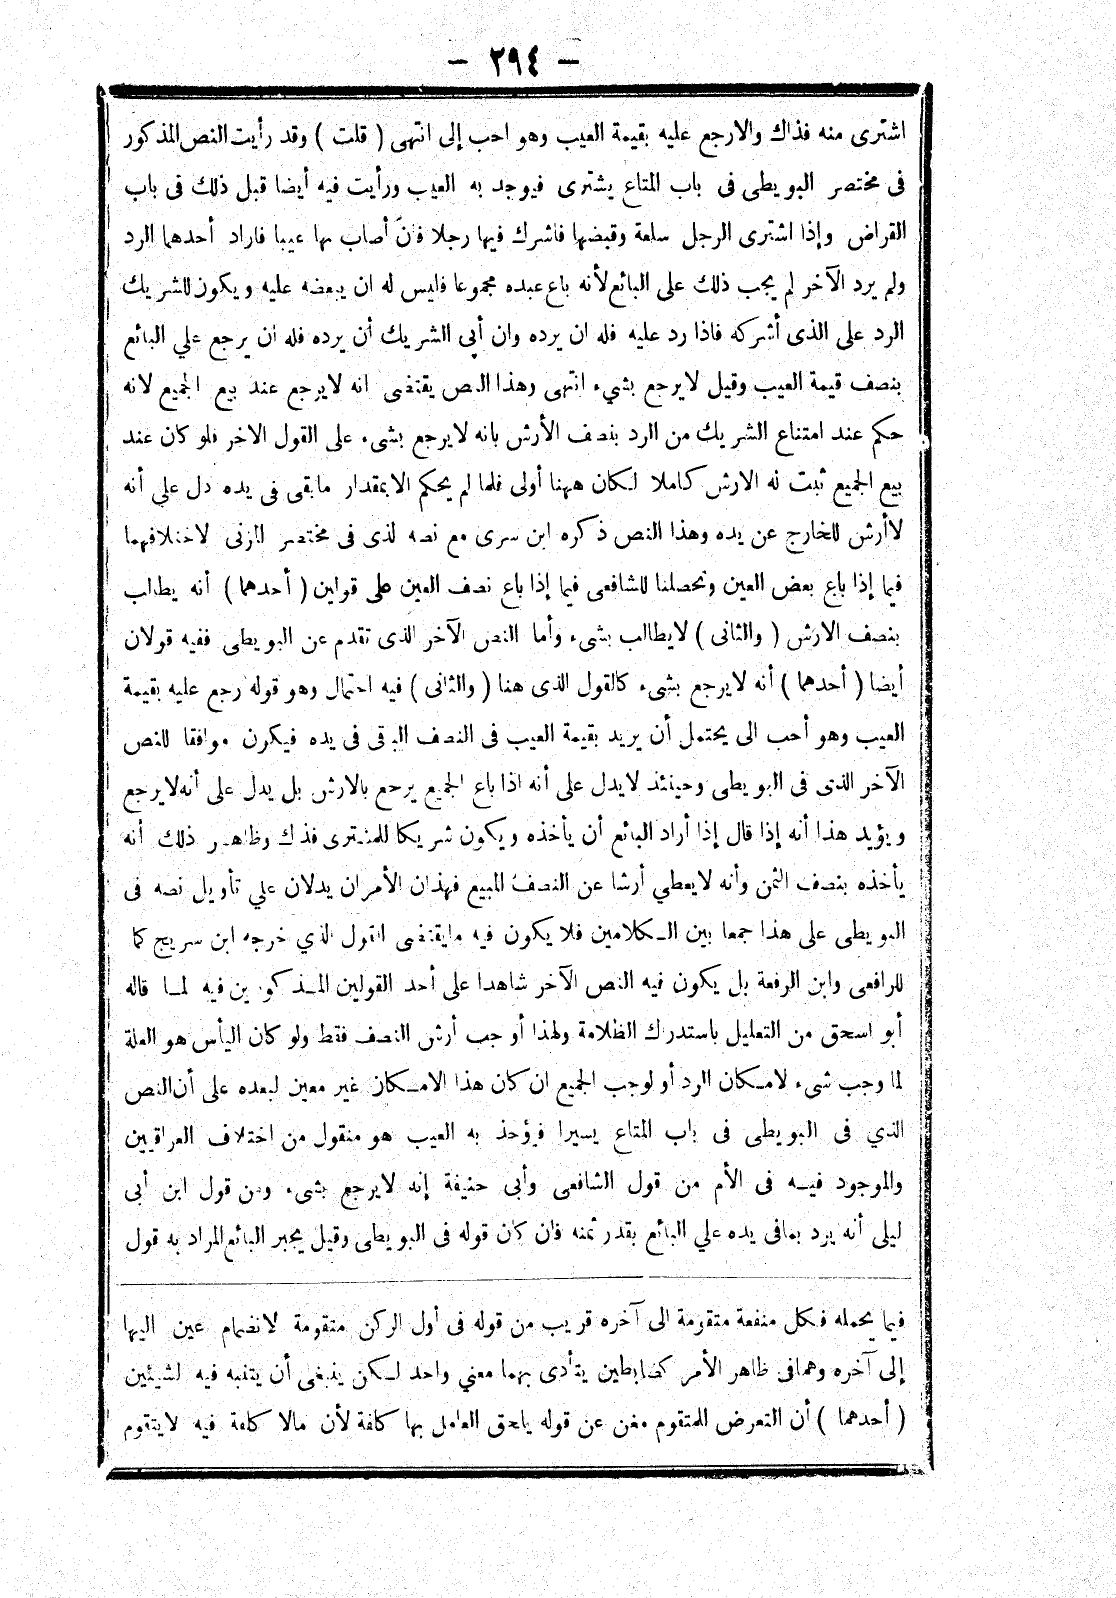 - ٢٩٤ -
اشترى منه فذاك والارجع عليه بقيمة العيب وهو احب إلى انتهى ( قلت ) وقد رأيت النص المذكور
فى مختصر البويطى فى باب المتاع يشترى فيوجد به العيب ورأيت فيه أيضا قبل ذلك فى باب
القراض وإذا اشترى الرجل سلعة وقبضها فاشرك فيها رجلا فان أصاب بها عيبا فاراد أحدهما الرد
ولم يرد الآخر لم يجب ذلك على البائع لأنه باع عبده مجموعا فليس له ان يبعضه عليه ويكون للشريك
الرد على الذى أشركه فاذا رد عليه فله ان يرده وان أبى الشريك أن يرده فله ان يرجع علي البائع
بنصف قيمة العيب وقيل لايرجع بشىء انتهى وهذا النص يقتضى انه لايرجع عند بيع الجميع لانه
حكم عند امتناع الشريك من الرد بنصف الأرش بانه لايرجع بشىء على القول الاخر فلو كان عند
بيع الجميع ثبت له الارش كاملا لكان ههنا أولى فلما لم يحكم الابمقدار مابقى فى يده دل علي أنه
لاأرش للخارج عن يده وهذا النص ذكره ابن سرى مع نصه لذى فى مختصر المزنى لاختلافهما
فيما إذا باع بعض العين وتحصلنا للشافعى فيما إذا باع نصف العين على قولين ( أحدهما ) أنه يطالب
بنصف الارش ( والثانى ) لايطالب بشىء وأما النص الآخر الذى تقدم عن البويطى ففيه قولان
أيضا ( أحدهما ) أنه لايرجع بشىء كالقول الذى هنا ( والثانى ) فيه احتمال وهو قوله رجع عليه بقيمة
العيب وهو أحب الى يحتمل أن يريد بقيمة العيب فى النصف الباقى فى يده فيكون موافقا للنص
الآخر الذى فى البويطى وحينئذ لايدل على أنه اذا باع الجميع يرجع بالارش بل يدل على أنه لايرجع
ويؤيد هذا أنه إذا قال إذا أراد البائع أن يأخذه ويكون شريكا للمشترى فذك وظاهر ذلك أنه
يأخذه بنصف الثمن وأنه لايعطي أرشا عن النصف المبيع فهذان الأمران يدلان علي تأويل نصه فى
البويطى على هذا جمعا بين الكلامين فلا يكون فيه مايقتضى القول الذي خرجه ابن سريج كما
للرافعى وابن الرفعة بل يكون فيه النص الآخر شاهدا على أحد القولين المذكورين فيه لما قاله
أبو اسحق من التعليل باستدرك الظلامة ولهذا أوجب أرش النصف فقط ولو كان اليأس هو العلة
لما وجب شىء لامكان الرد أو لوجب الجميع ان كان هذا الامكان غير معين لبعده على أن النص
الذي فى البويطى فى باب المتاع يسيرا فيؤخذ به العيب هو منقول من اختلاف العراقيين
والموجود فيه فى الأم من قول الشافعى وأبى حنيفة إنه لايرجع بشىء ومن قول ابن أبى
ليلى أنه يرد بمافى يده علي البائع بقدر ثمنه فان كان قوله فى البويطى وقيل يجبر البائع المراد به قول
فيما يحمله فكل منفعة متقومة الى آخره قريب من قوله فى أول الركن متقومة لانضمام عين اليها
إلى آخره وهمافى ظاهر الأمر كضابطين يتأدى بهما معني واحد لكن ينبغى أن يتنبه فيه لشيئين
( أحدهما ) أن التعرض للمتقوم مغن عن قوله يلحق العامل بها كلفة لأن مالا كلفة فيه لايتقوم